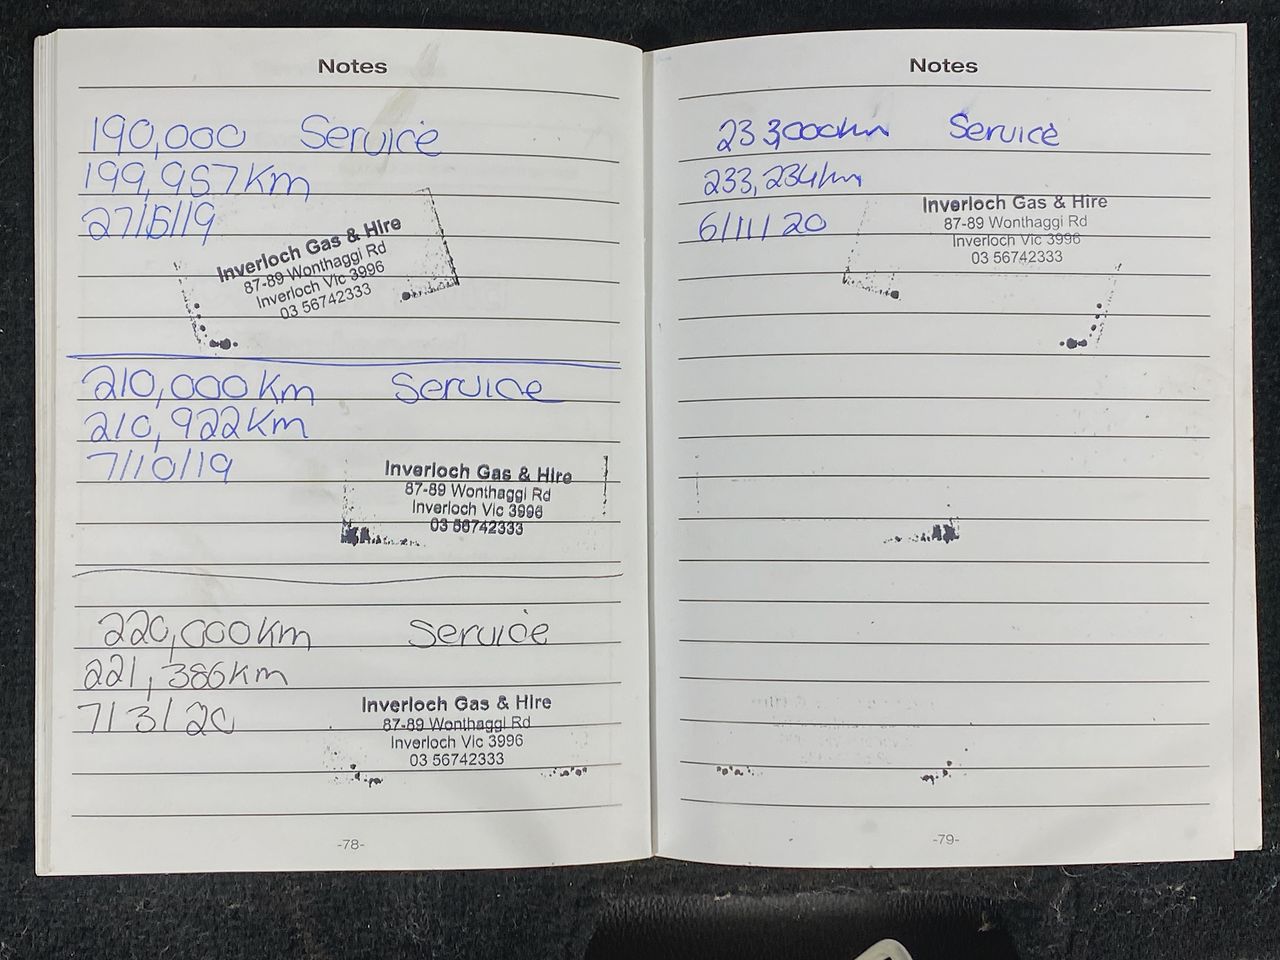 Notes
190,000 Service
199,957Km
27/6/19
Inverloch Gas & Hire
87-89 Wonthaggi Rd
Inverloch Vic 3996
03 56742333
210,000Km Service
210,922Km
7/10/19
Inverloch Gas & Hire
87-89 Wonthaggi Rd
Inverloch Vic 3996
03 56742333
220,000Km Service
221,386Km
7/3/20
Inverloch Gas & Hire
87-89 Wonthaggi Rd
Inverloch Vic 3996
03 56742333
-78-
Notes
233,000km Service
233,234km
6/11/20
Inverloch Gas & Hire
87-89 Wonthaggi Rd
Inverloch Vic 3996
03 56742333
-79-